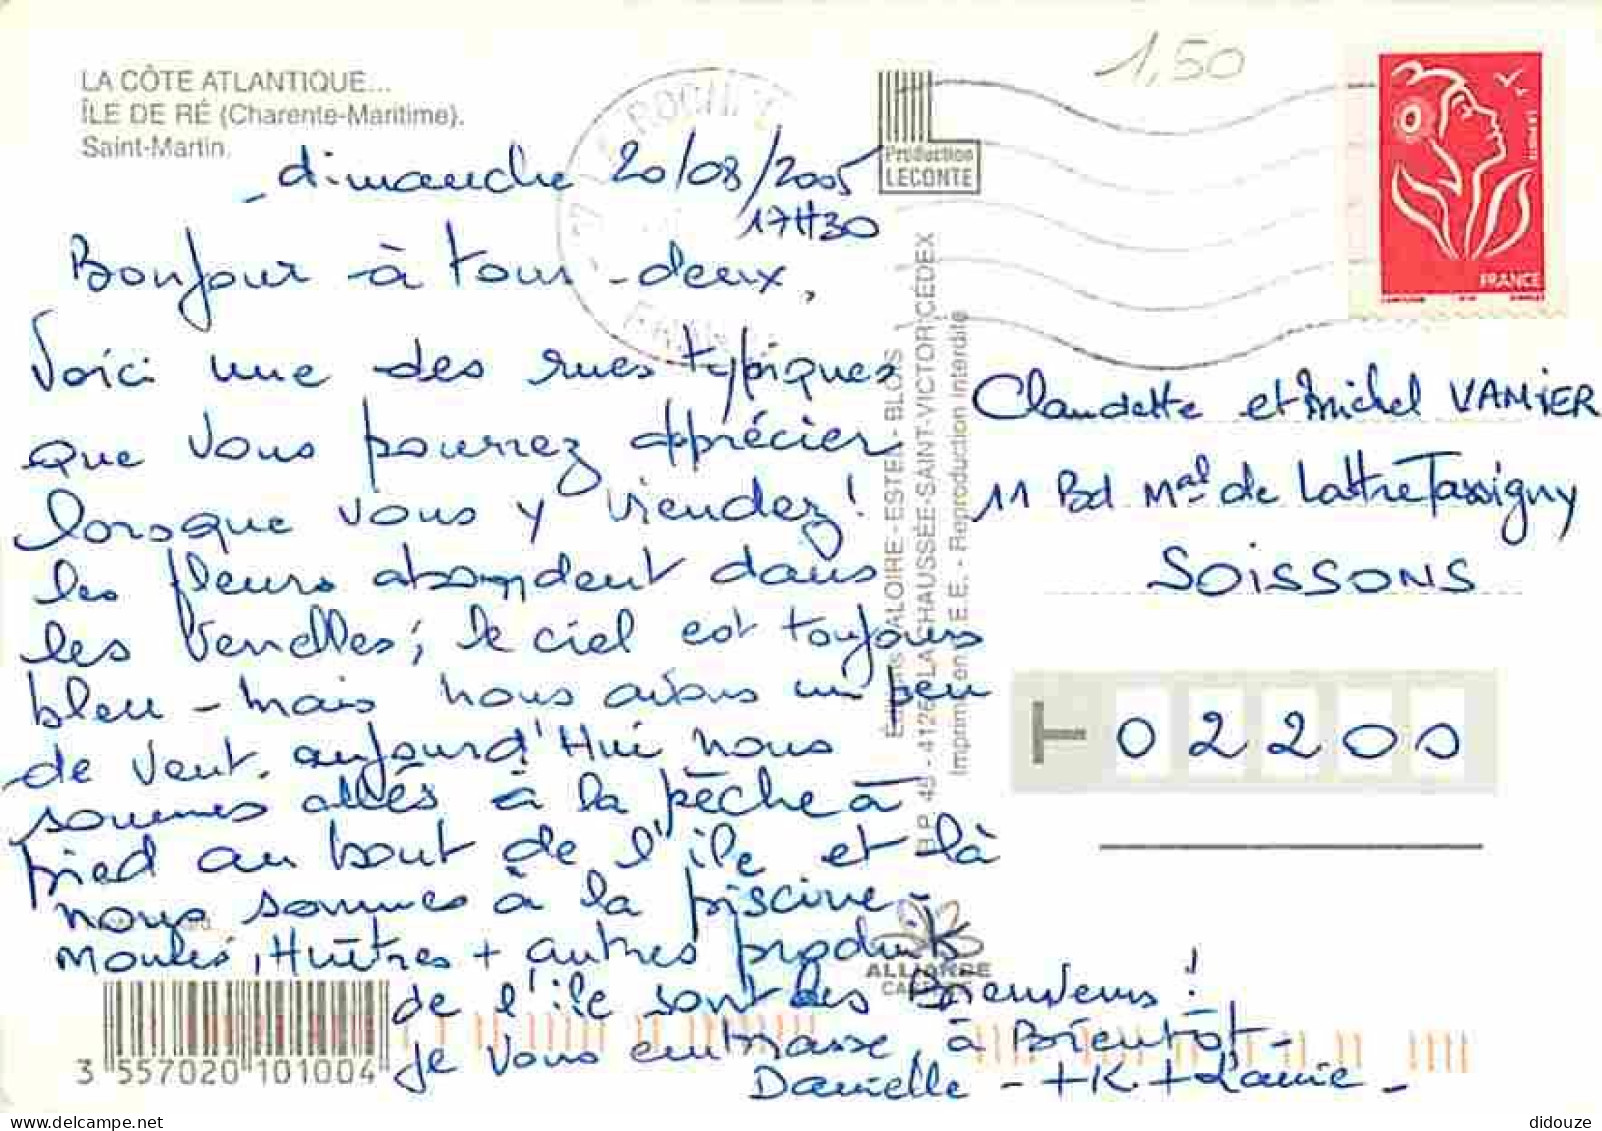 LA CÔTE ATLANTIQUE...
ÎLE DE RÉ (Charente-Maritime).
Saint-Martin.
1,50
Production
LECONTE
FRANCE
dimanche 20/08/2005
17H30
Bonjour à tous deux,
Voici une des rues typiques
que vous pourrez apprécier
lorsque vous y viendez !
les fleurs abondent dans
les venelles, le ciel est toujours
bleu - mais nous avons un peu
de vent. aujourd'Hui nous
sommes allés à la pêche à
pied au bout de l'île et là
nous sommes à la piscine -
Moules, Huîtres + autres produits
de l'île sont les Bienvenus !
je vous embrasse, à Bientôt -
Danielle - + K. +
Claudette et Michel VANIER
11 Bd Mal de Lattre Tassigny
SOISSONS
02200
B.P. 45 - 41260 LA CHAUSSÉE-SAINT-VICTOR CÉDEX
Imprimé en E.E. - Reproduction interdite
ALLIANCE
3 557020 101004
didouze